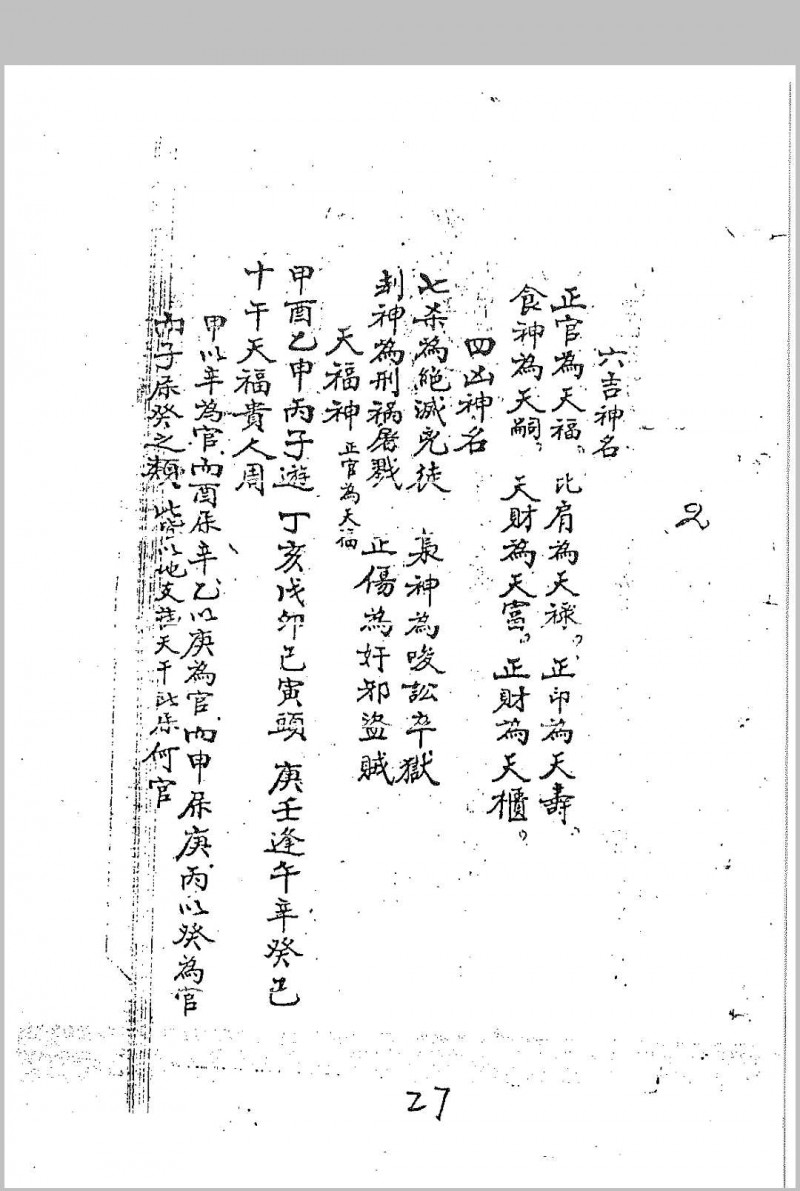 2
六吉神名
正官為天福。比肩為天祿。正印為天壽。
食神為天嗣。天財為天富。正財為天櫃。
四凶神名
七杀為絕滅兇徒 梟神為唆訟卒獄
刦神為刑禍屠戮 正傷為奸邪盜賊
天福神 正官為天福
甲酉乙申丙子遊 丁亥戊卯己寅頭 庚壬逢午辛癸巳
十干天福貴人周
甲以辛為官而酉屈辛乙以庚為官而申屈庚丙以癸為官
而子屈癸之類 此皆以地支 天干 何官
27